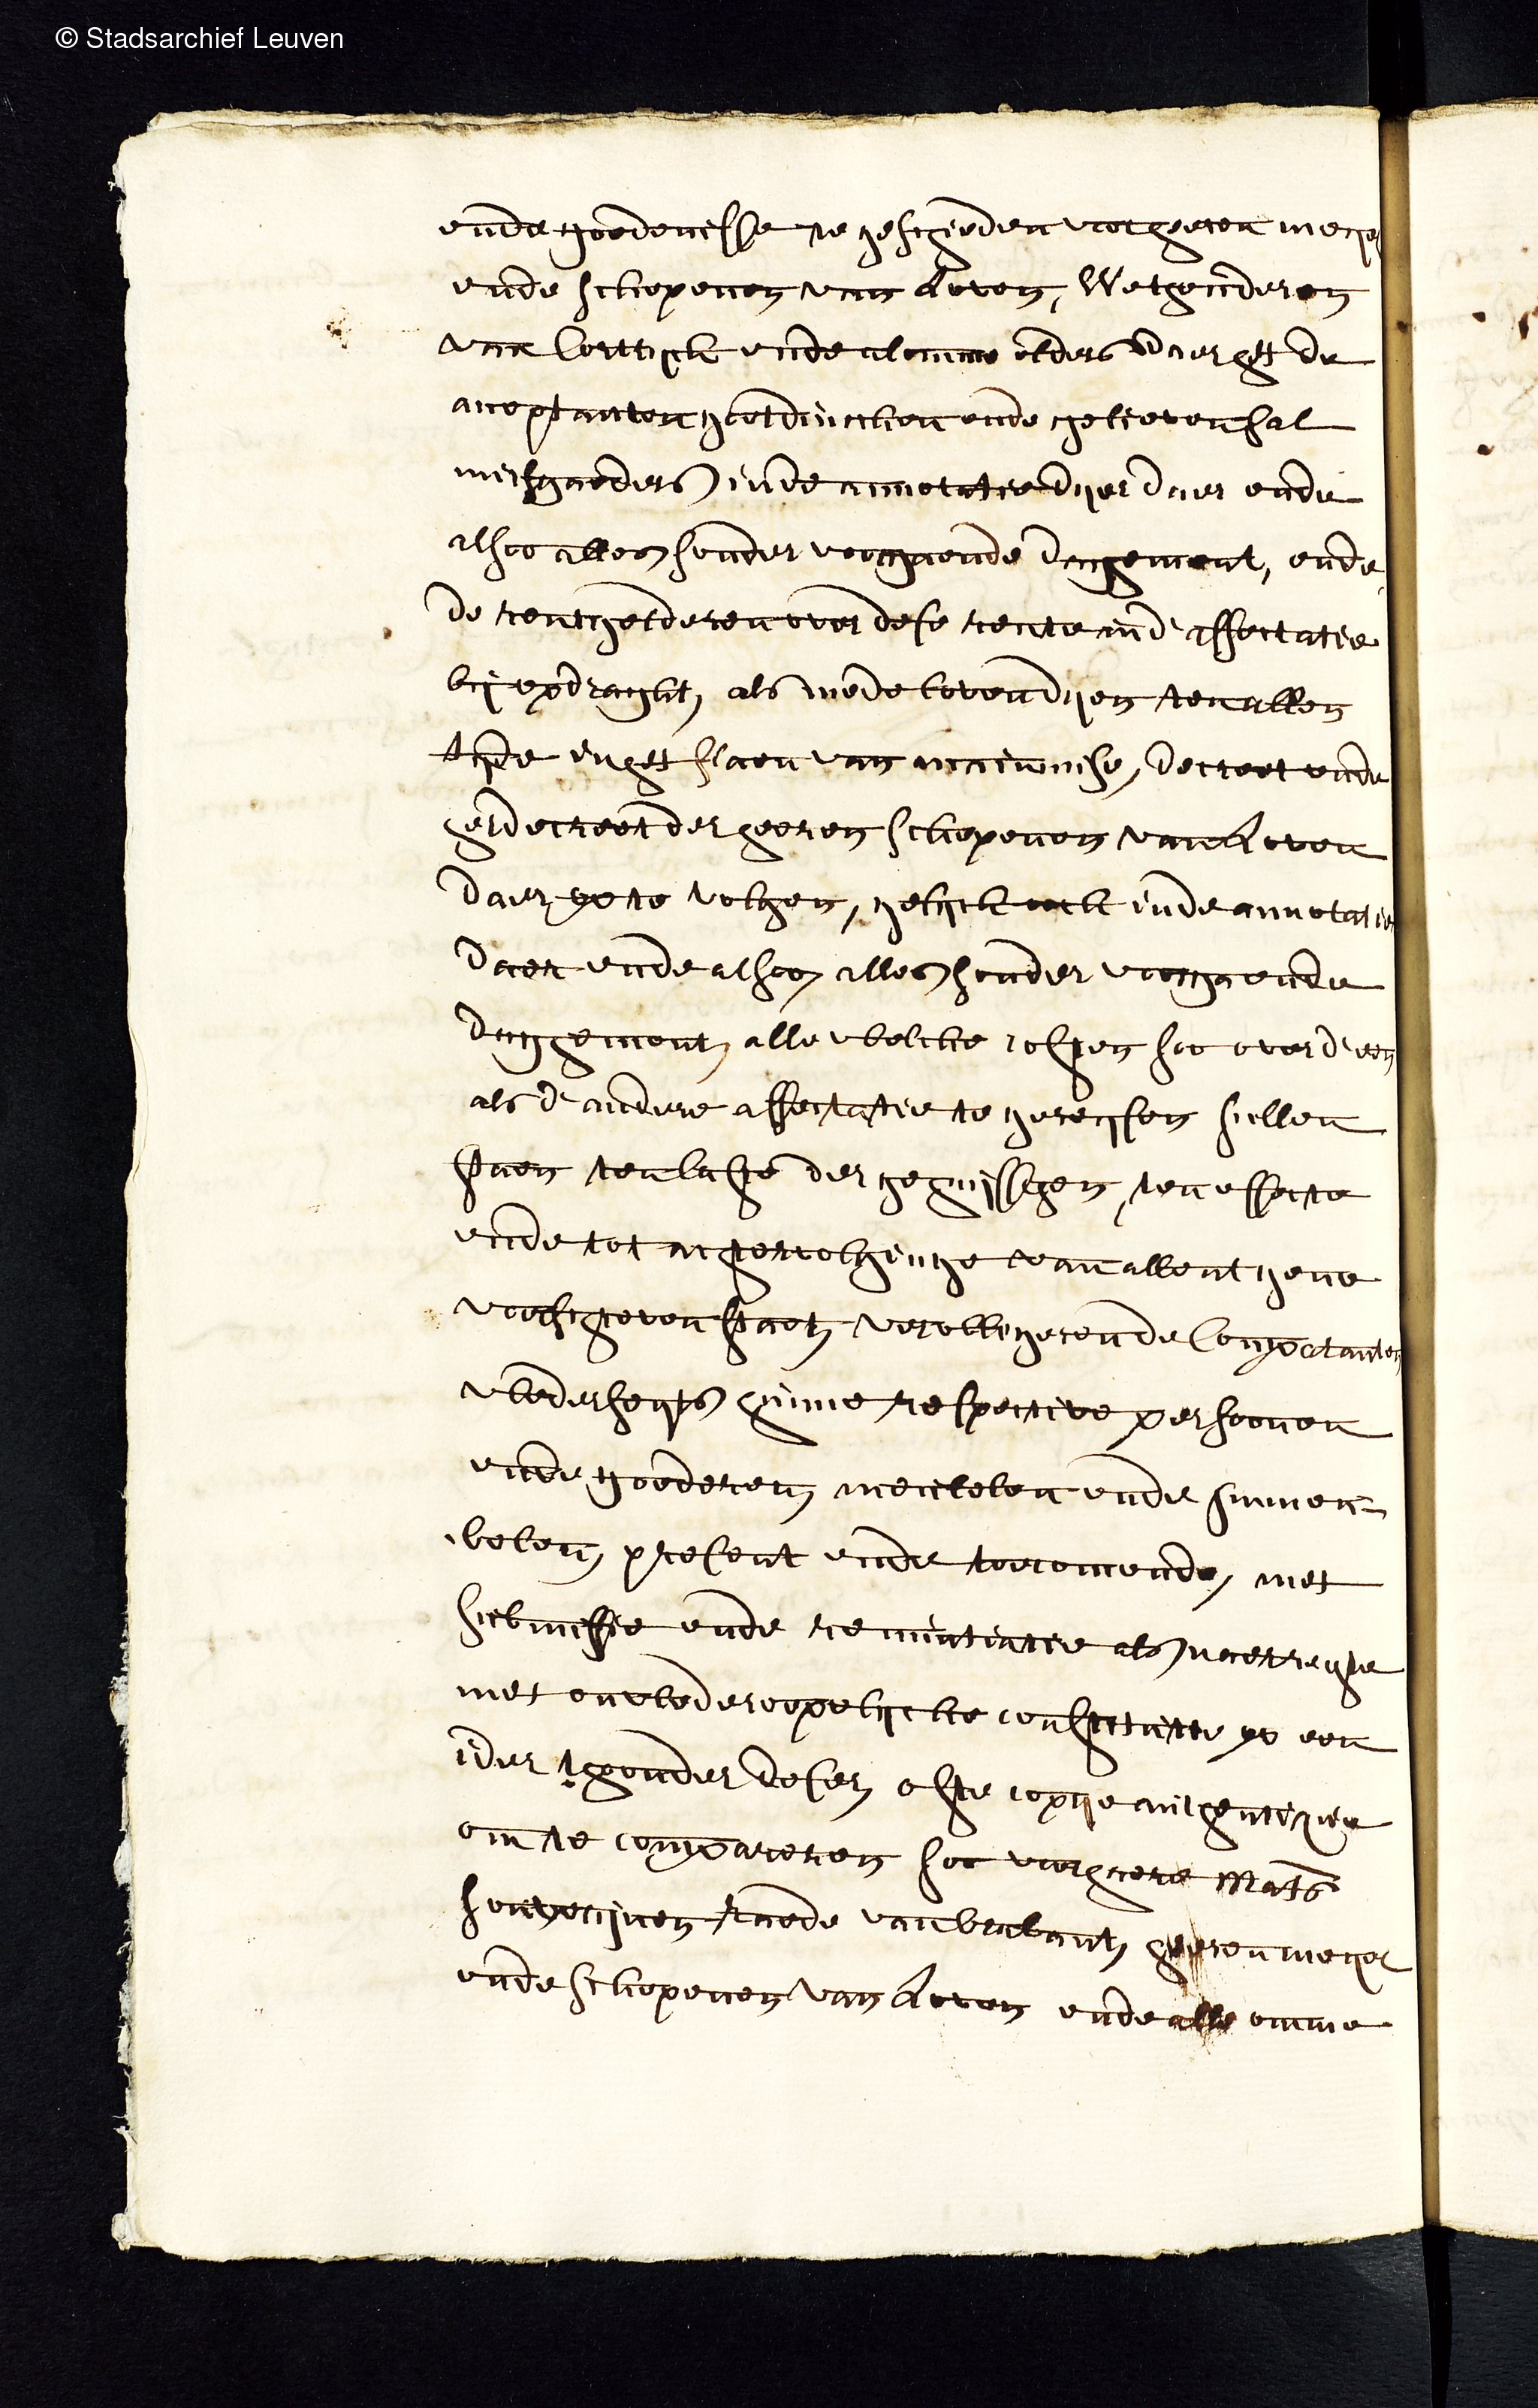 © Stadsarchief Leuven
ende goedenisse te geschieden voor heeren meyer
ende schepenen van Loven, Wethouderen
van Corttryck ende alomme elders daer het de
acceptanten goetduncken ende gelieven sal
mitsgaeders inde annotatie dyer daer ende
alsoo alles sonder voorgaende dagement, ende
de rentgelderen over dese rente ind' affectatie
bij opdraght, als mede lovendyen ten allen
tyde in het slaen van mainmise, decreet ende
herdecreet der heeren schepenen van Loven
daer op te volgen, gelyck oock inde annotatie
daer ende alsoo, alles sonder voorgaende
dagement, alle welcke costen soo over d'een
als d'andere affectatie te gereysen sullen
staen ten laste der gehuysschen, ten effecte
ende tot achtervolginge van allent gene
voorschreven staet, verobligerende Comparanten
wederseyts hunne respective persoonen
ende goederen, meubelen ende immeu-
belen, present ende toecomende, met
submissie ende renuntiatie als naer rechte
met onwederoepelycke constitutie op een
ider thoonder deser, ofte copye authenticque
om te compareren soo voor haere Mats
souvereynen Raede van Brabant, heeren meyer
ende schepenen van Loven ende alle omme